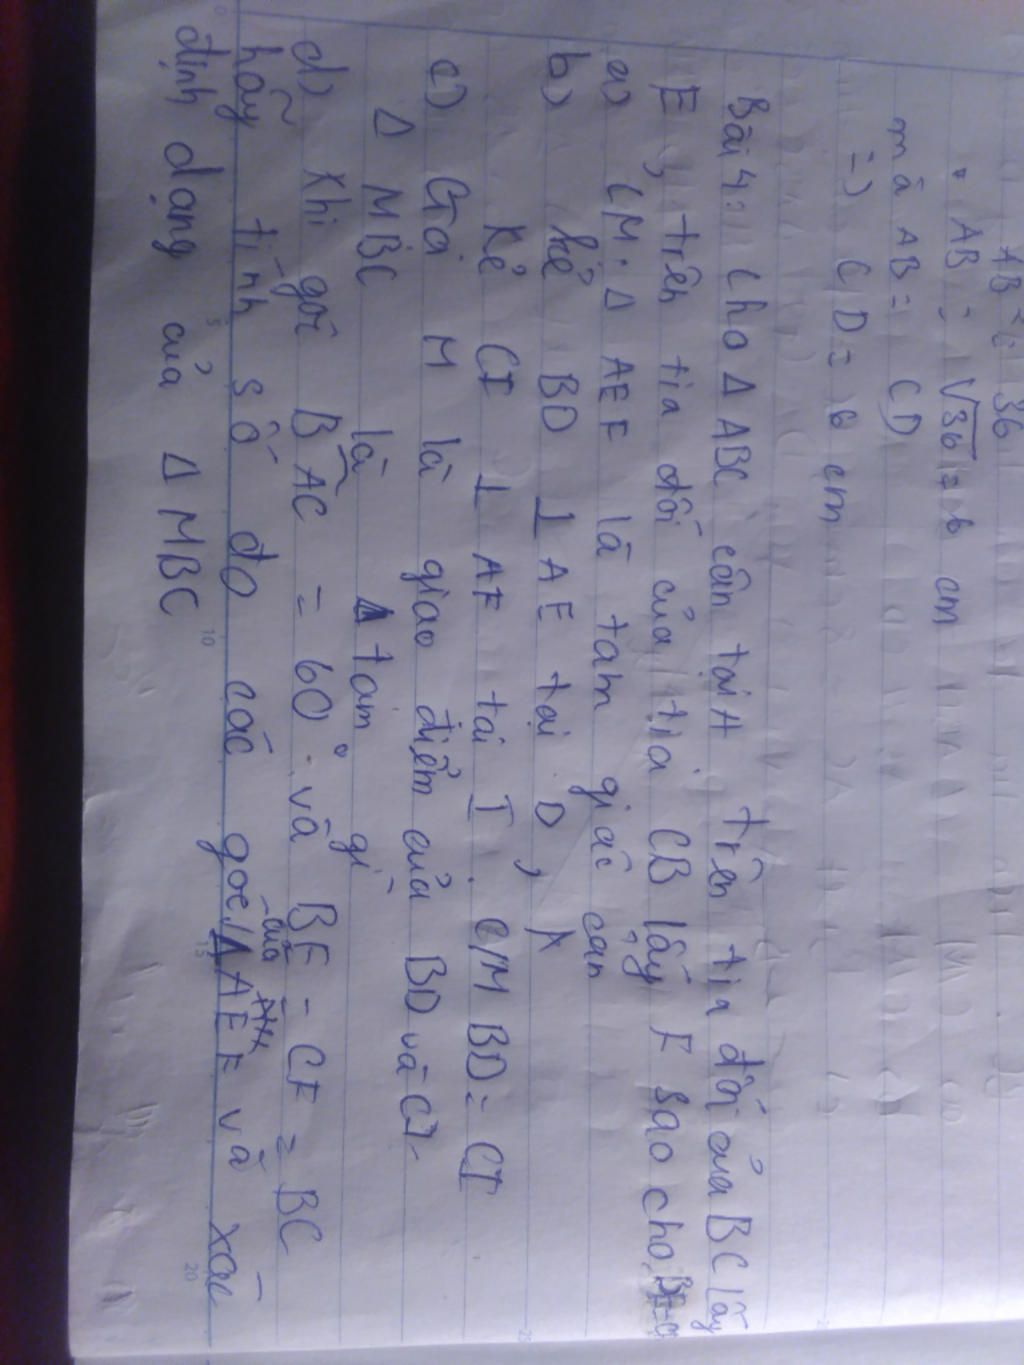 AB² = 36
AB = √36 = 6 cm
mà AB = CD
=) CD = 6 cm
Bài 4: Cho Δ ABC cân tại A trên tia đối của BC lấy
E, trên tia đối của tia CB lấy F sao cho BE = CF
a) CM. Δ AEF là tam giác cân
b) kẻ BD ⊥ AE tại D,
Kẻ CI ⊥ AF tại I. C/M BD = CI
c) Gọi M là giao điểm của BD và CI.
Δ MBC là tam gì
d) Khi góc BAC = 60° và BE = CF = BC
hãy tính số đo các góc của Δ AEF và xác
định dạng của Δ MBC